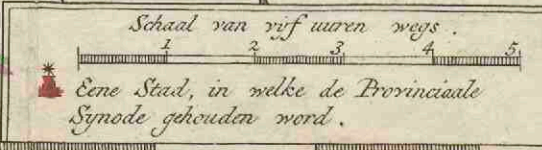 Schaal van vijf uuren wegs.
1 2 3 4 5
Eene Stad, in welke de Provinciaale
Synode gehouden word.